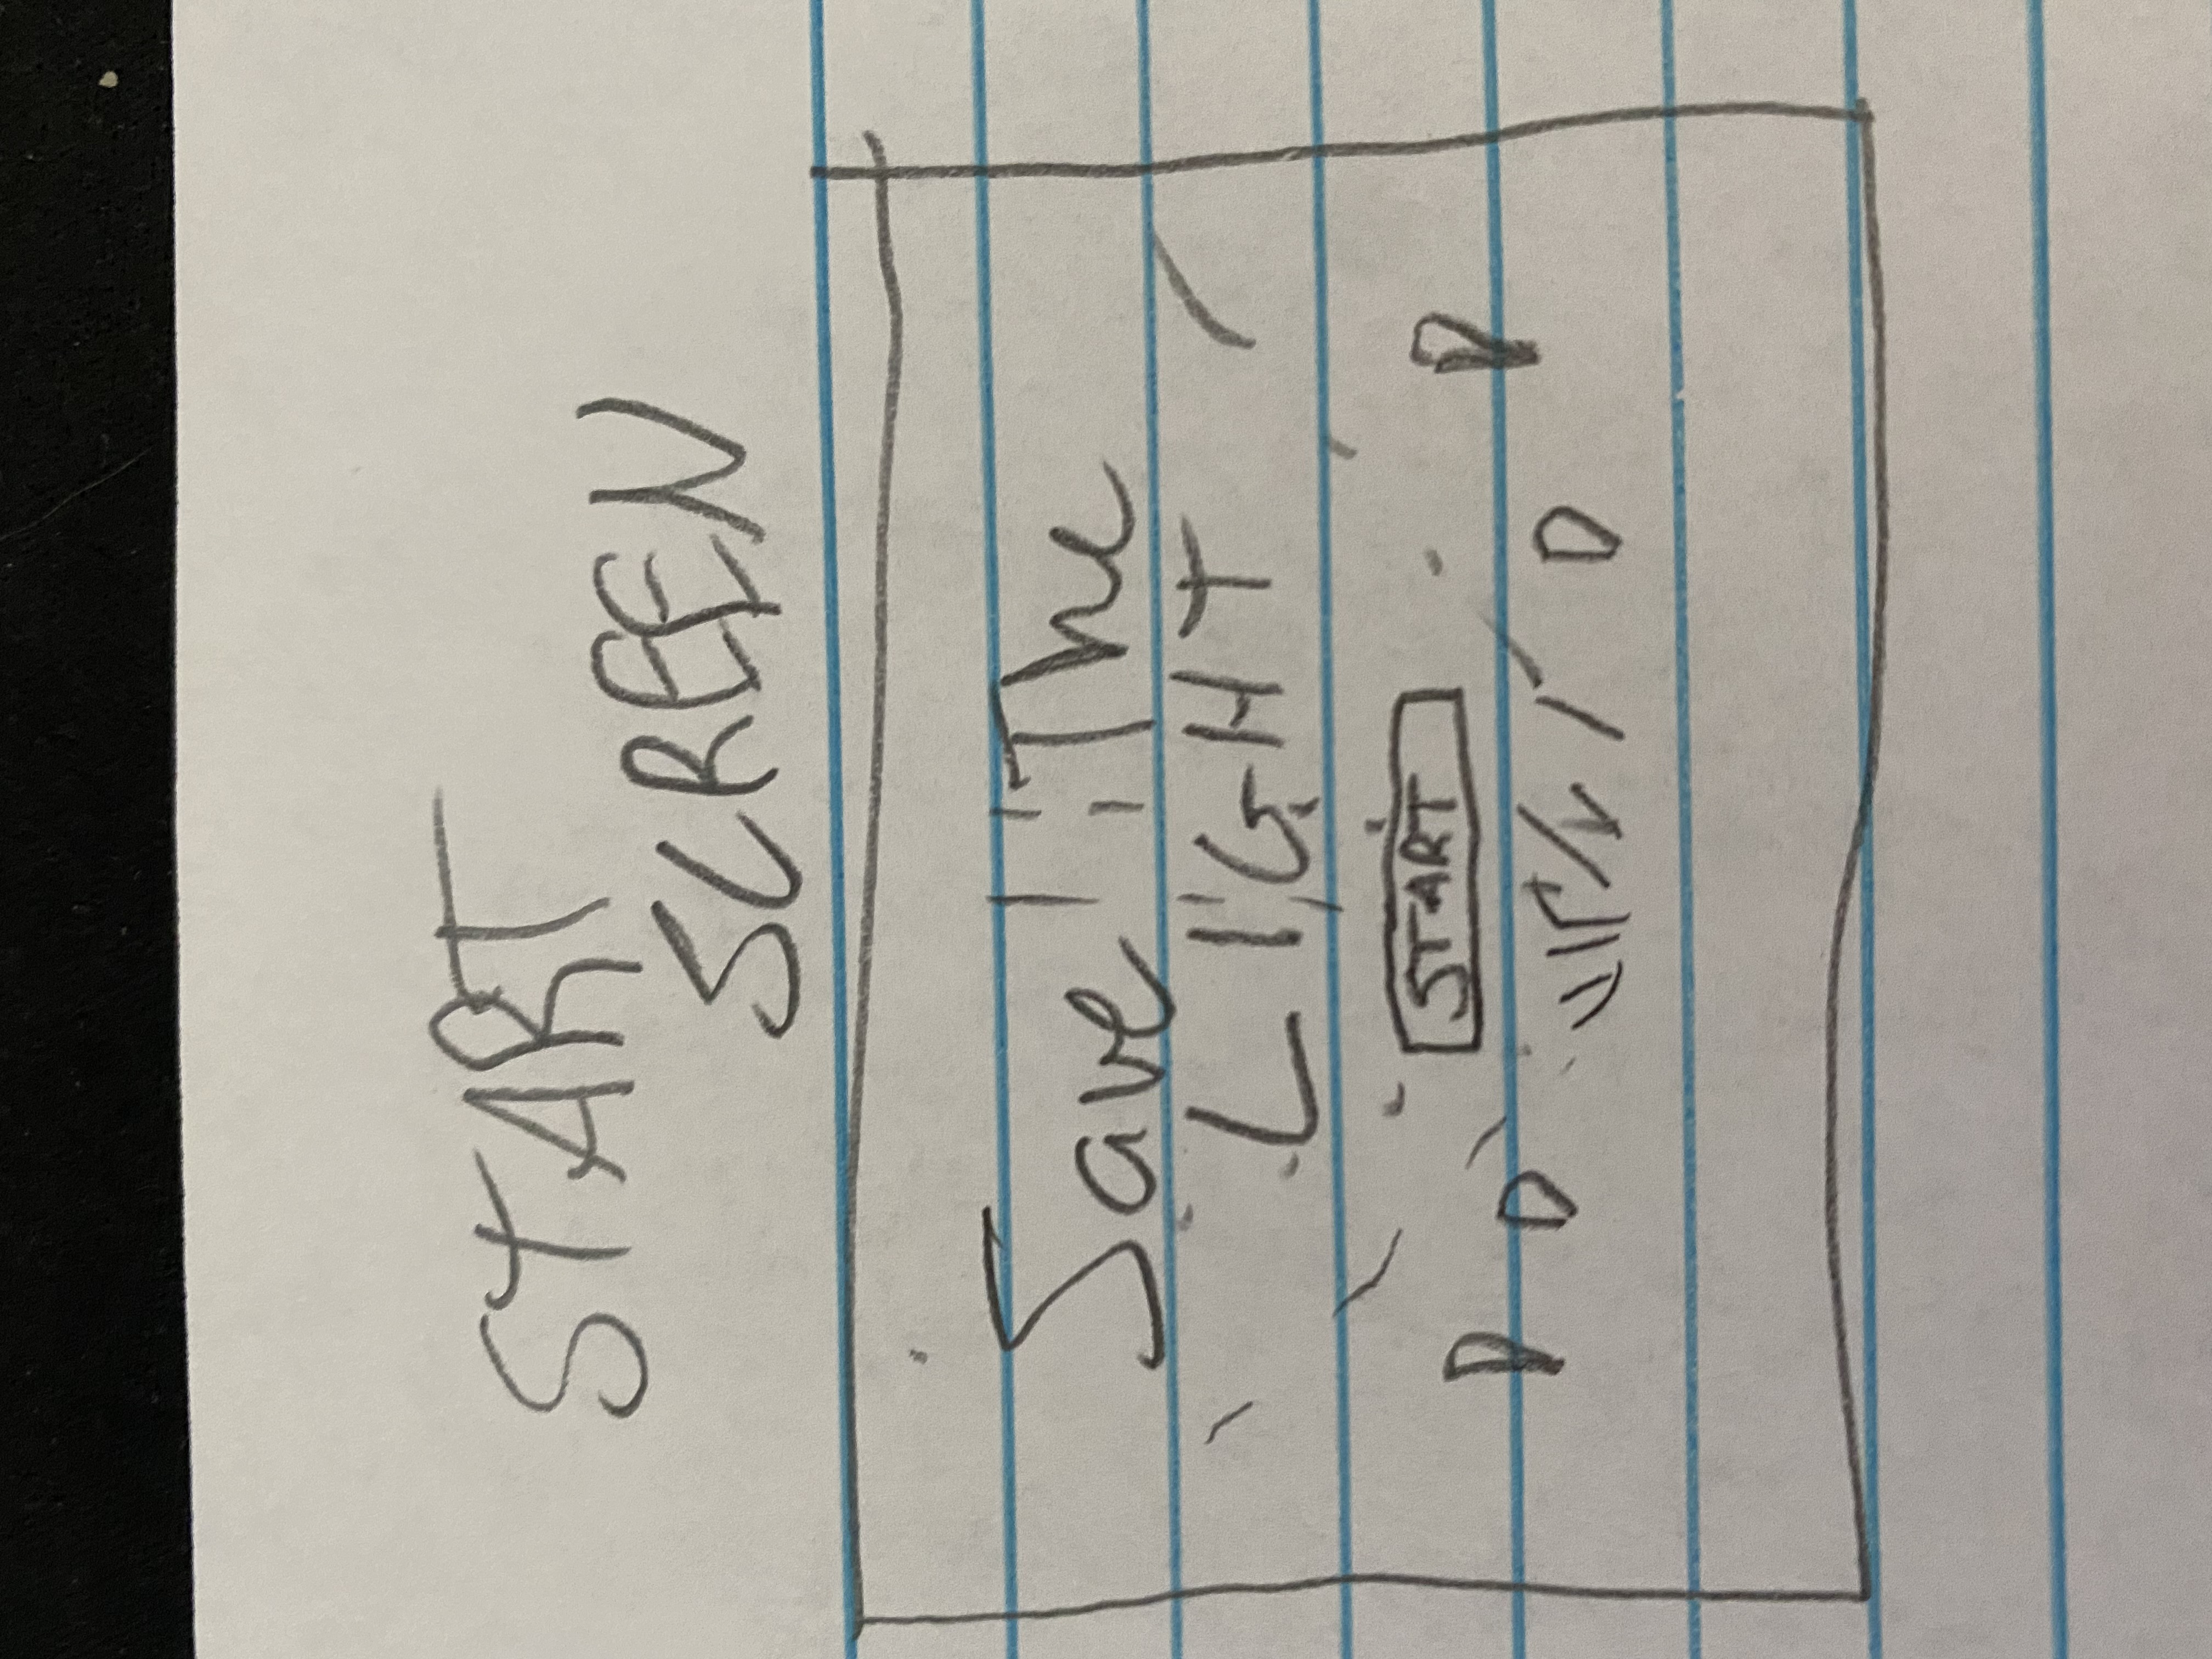 START
SCREEN
Save The
LIGHT
START